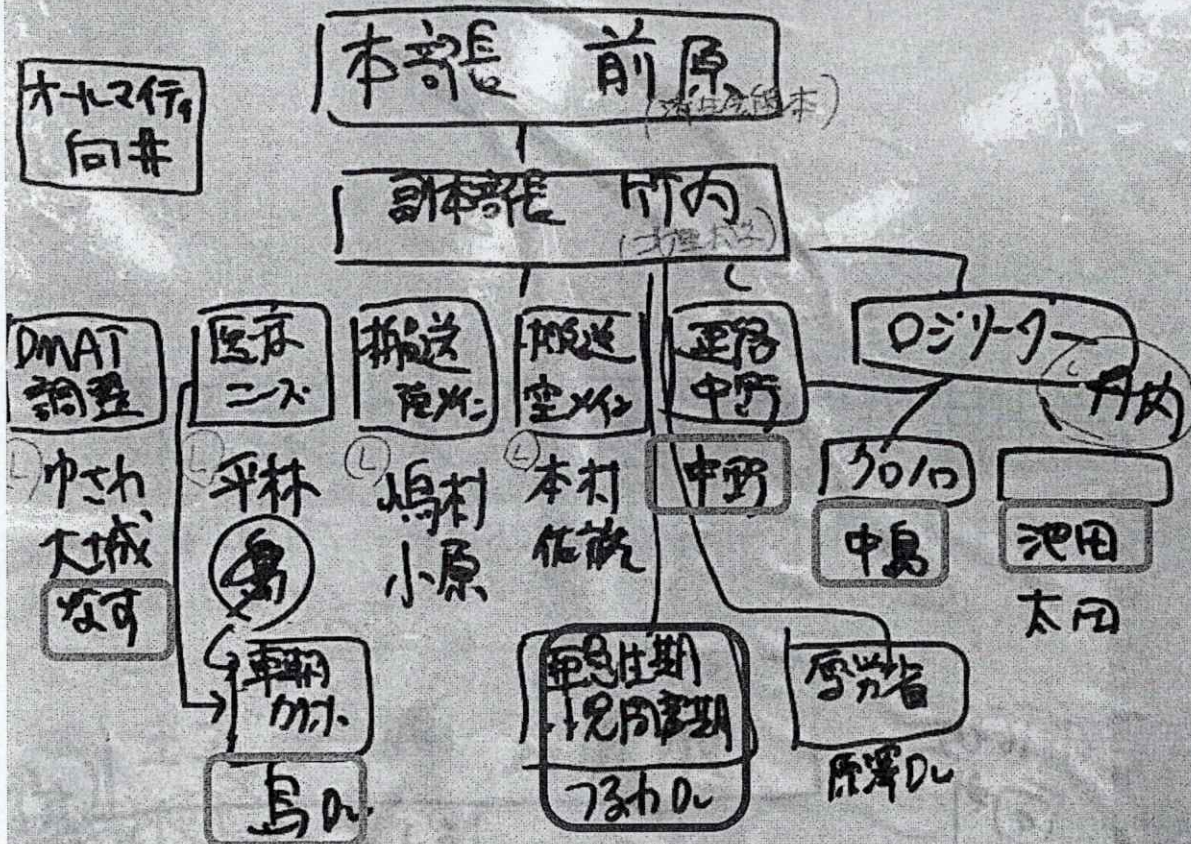 オールマイティ
向井
本部長 前原
(済生会熊本)
副本部長 竹内
DMAT
調整
Ⓛ ゆさわ
大城
なす
医療
ニーズ
Ⓛ 平林
島
車輌
島Dr.
搬送
陸メイン
Ⓛ 嶋村
小原
搬送
空メイン
Ⓛ 本村
佐藤
亜急性期
小児周産期
つるわDr
中野
中野
厚労省
原澤Dr
ロジリーダー
クロノロ
中島
池田
太田